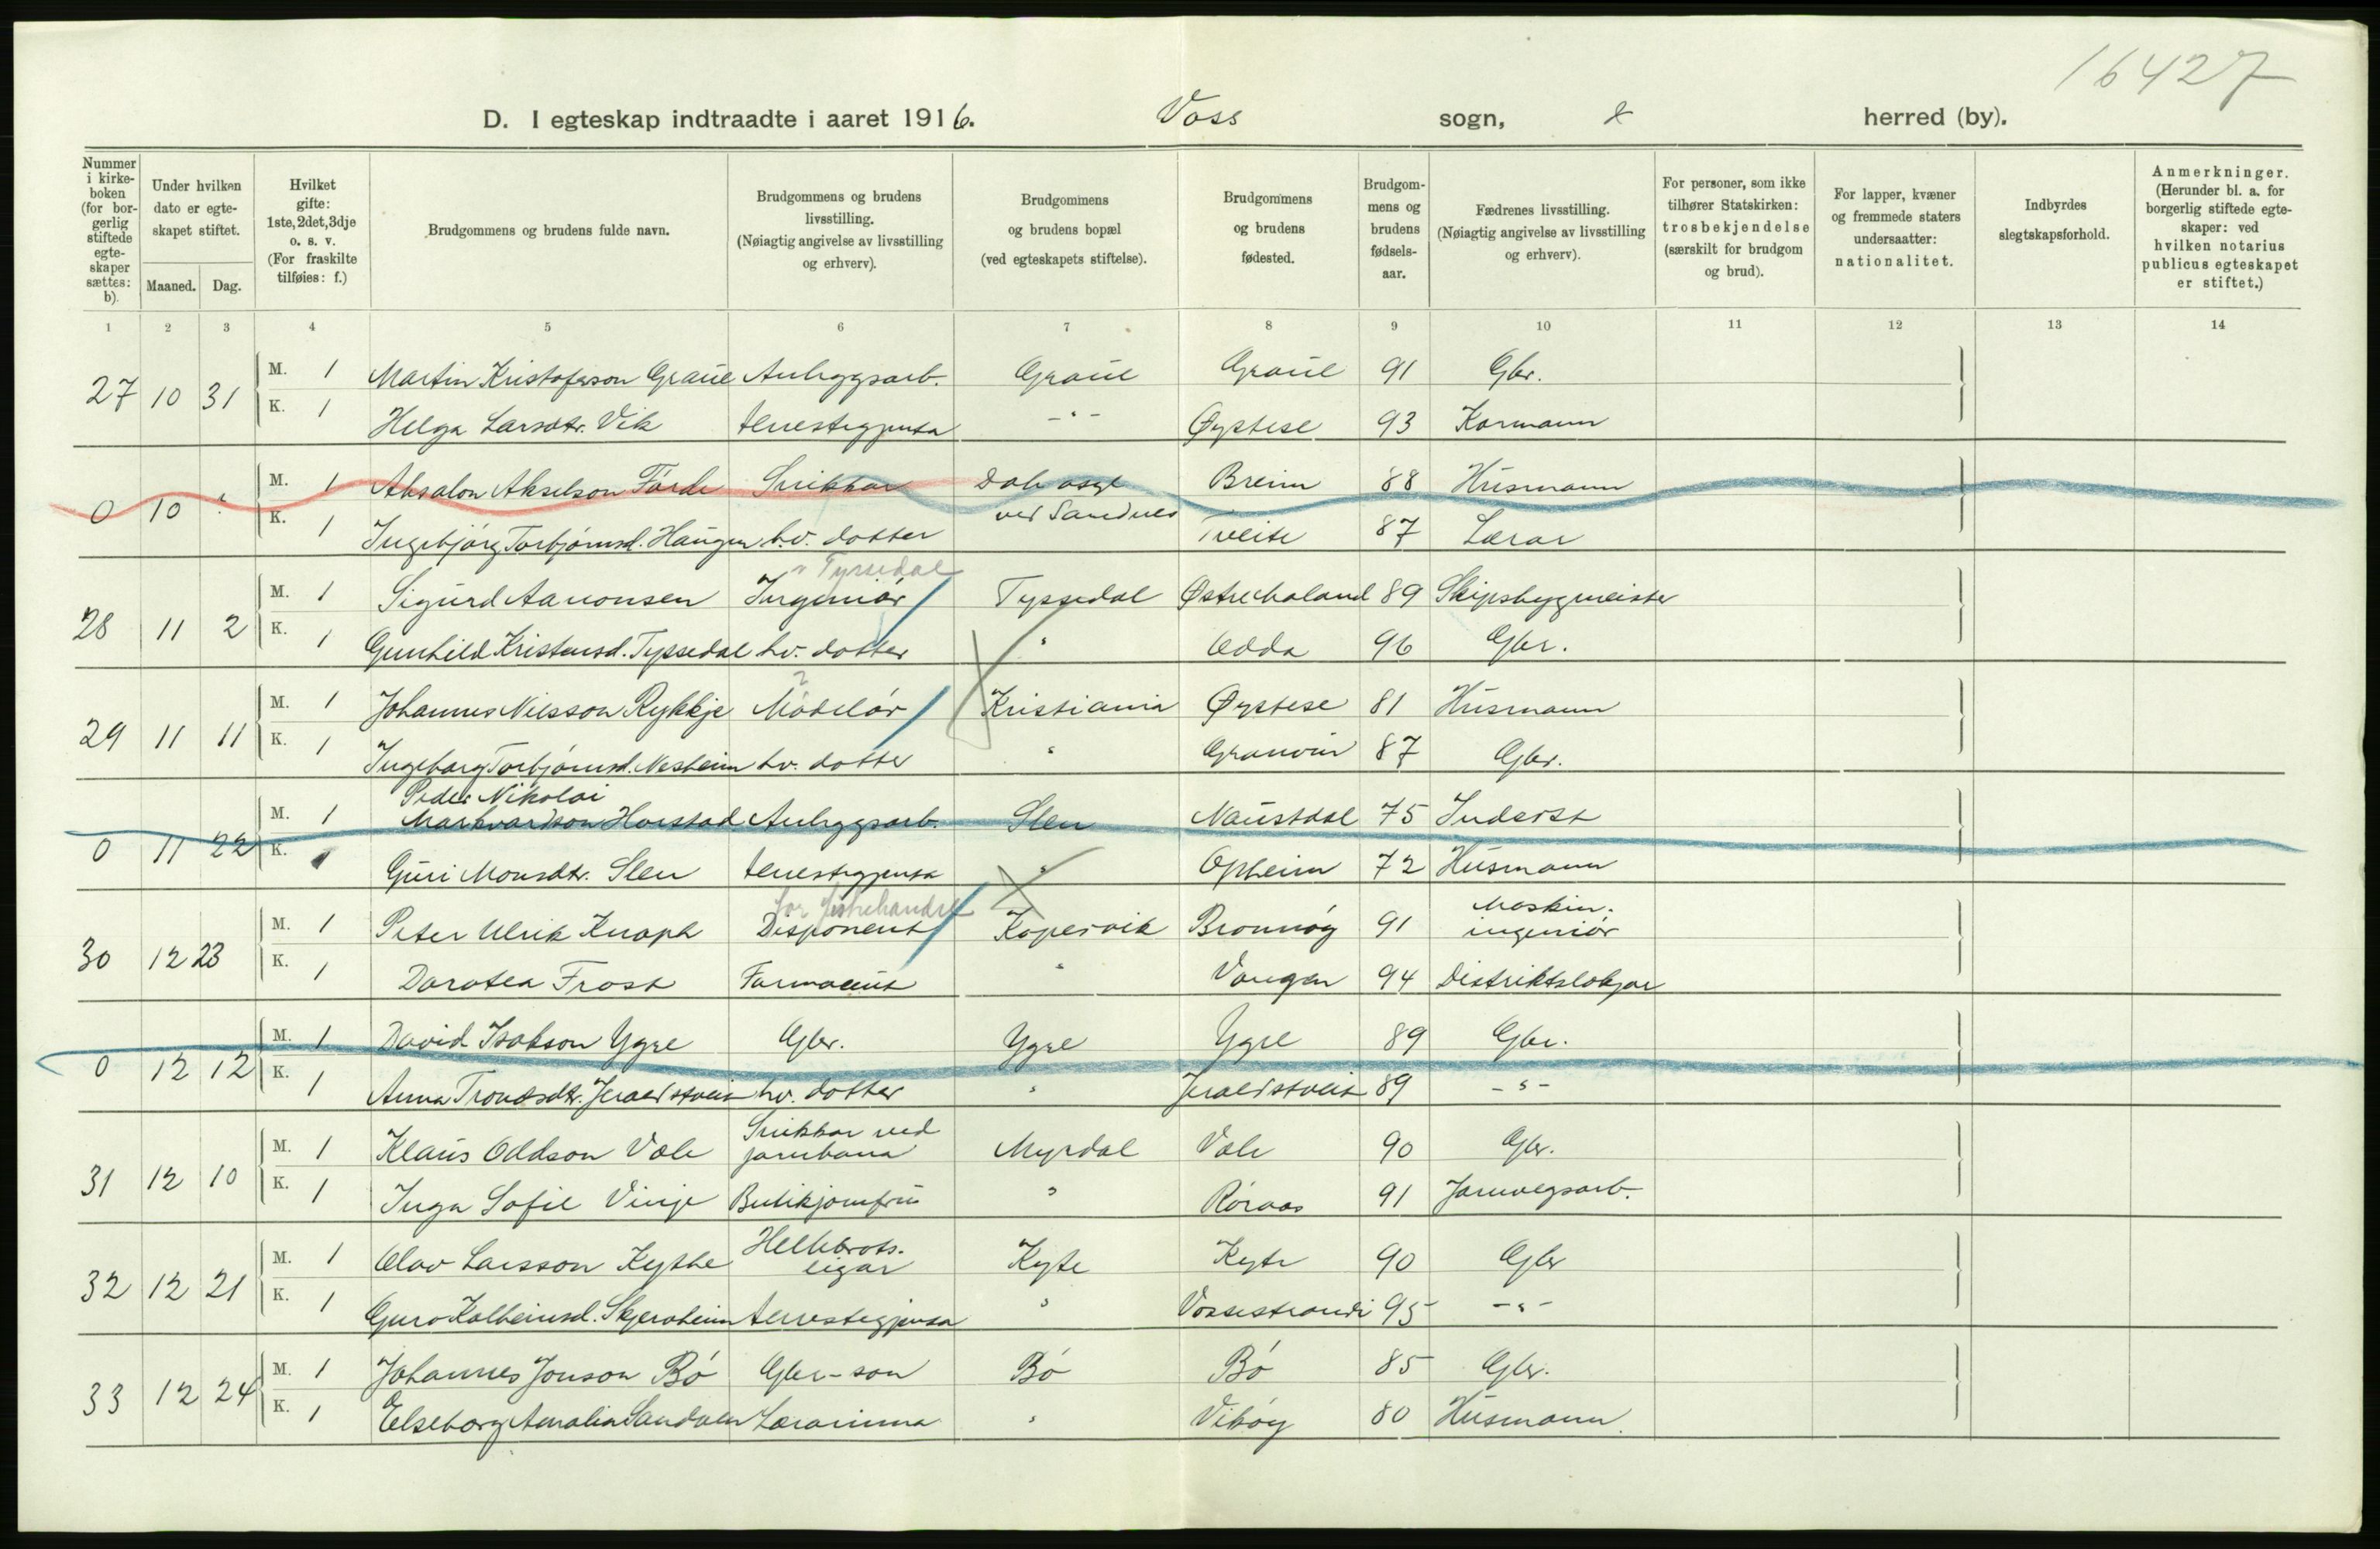 16427
D. I egteskap indtraadte i aaret 1916. Voss sogn, herred (by).
Nummer i kirke-boken (for bor-gerlig stiftede egte-skaper sættes: b).
Under hvilken dato er egte-skapet stiftet.
Maaned. Dag.
Hvilket gifte: 1ste, 2det, 3dje o. s. v. (For fraskilte tilføies: f.)
Brudgommens og brudens fulde navn.
Brudgommens og brudens livsstilling. (Nøiagtig angivelse av livsstilling og erhverv).
Brudgommens og brudens bopæl (ved egteskapets stiftelse).
Brudgommens og brudens fødested.
Brudgom-mens og brudens fødsels-aar.
Fædrenes livsstilling. (Nøiagtig angivelse av livsstilling og erhverv).
For personer, som ikke tilhører Statskirken: trosbekjendelse (særskilt for brudgom og brud).
For lapper, kvæner og fremmede staters undersaatter: nationalitet.
Indbyrdes slegtskapsforhold.
Anmerkninger. (Herunder bl. a. for borgerlig stiftede egte-skaper: ved hvilken notarius publicus egteskapet er stiftet.)
1 2 3 4 5 6 7 8 9 10 11 12 13 14
27 10 31 M. 1 Martin Kristoferson Graue Anleggsarb. Graue Graue 91 Gbr.
K. 1 Helga Larsdtr. Vik tenestegjenta -"- Øystese 93 Kormann
0 10 M. 1 Absalon Akselson Förde Snikkar Dale Breim 88 Husmann
ved Sandnes
K. 1 Ingebjörg Torbjörnsd. Haugen hv. dotter Tveite 87 Lærar
Tyssedal
28 11 2 M. 1 Sigurd Aanonsen Ingeniör Tyssedal Østrehaland 89 Skipsbygmeister
K. 1 Gunhild Kristensd. Tyssedal hv. dotter " Odda 96 Gbr.
29 11 11 M. 1 Johannes Nilsson Rykkje Modelör Kristiania Øystese 81 Husmann
K. 1 Ingeborg Torbjörnsd. Nesheim hv. dotter " Granvin 87 Gbr.
Peder Nikolai
0 11 22 M. 1 Markvardson Horstad Anleggsarb. Slen Naustdal 75 Inderst
K. 1 Guri Monsdtr. Slen tenestegjenta " Opheim 72 Husmann
for
30 12 23 M. 1 Peter Ulrik Knaph Disponent Kopervik Bronnöy 91 Maskin-
ingeniör
K. 1 Dorotea Frost Farmaceut " Vangen 94 Distriktslækjar
0 12 12 M. 1 David Isakson Ygre Gbr. Ygre Ygre 89 Gbr.
K. 1 Anna Trondsdtr. Jeraldstveit hv. dotter " Jeraldstveit 89 -"-
Snikkar ved
31 12 10 M. 1 Klaus Oddson Vale jarnbana Myrdal Vale 90 Gbr.
K. 1 Inga Sofie Vinje Butikjomfru " Röraas 91 Jarnvegsarb.
Hellebrots-
32 12 21 M. 1 Olav Larsson Kythe eigar Kyte Kyte 90 Gbr
K. 1 Guro Kolbeinsd. Skjerpheim tenestegjenta " Vossestrandi 95 -"-
33 12 24 M. 1 Johannes Jonson Bö Gbr-son Bö Bö 85 Gbr.
K. 1 Elseborg Amalia Sandven Lærarinna " Viköy 80 Husmann.